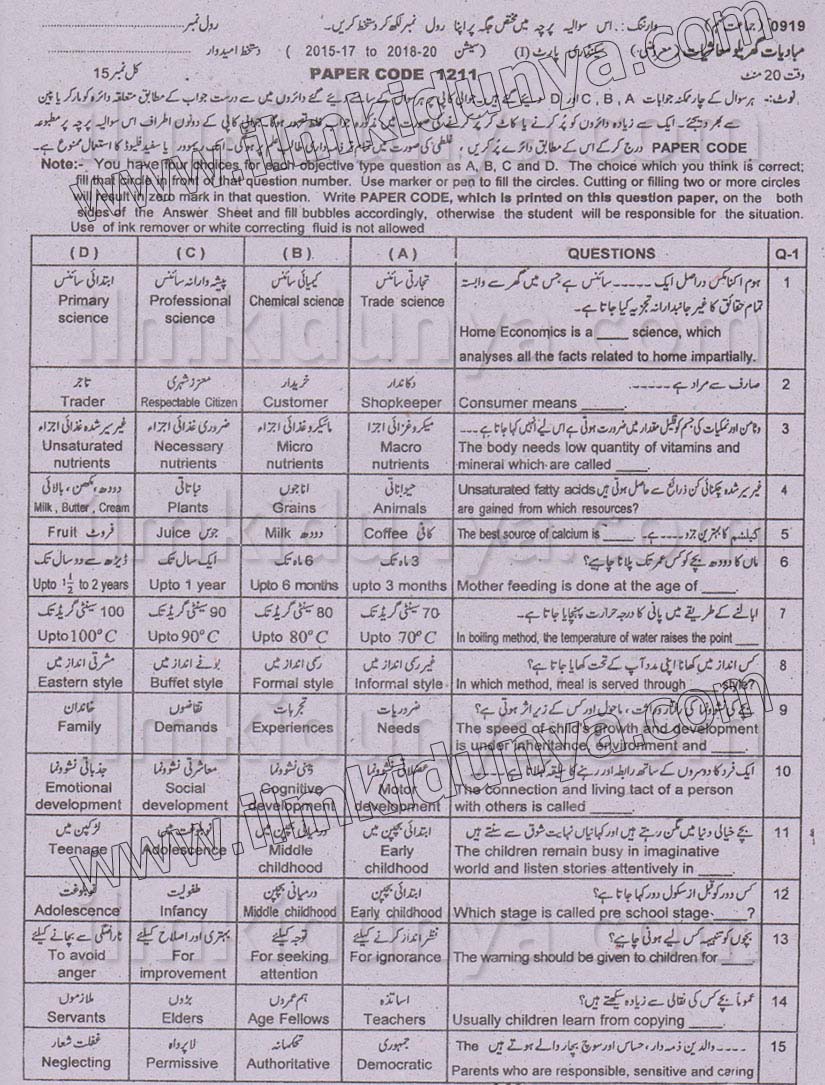 0919 (جماعت نہم) وارننگ: اس سوالیہ پرچہ میں مختص جگہ پر اپنا رول نمبر لکھ کر دستخط کریں۔ رول نمبر
مبادیات (معروضی) سیکنڈری پارٹ (I) (سیشن 2015-17 to 2018-20) دستخط امیدوار
وقت 20 منٹ PAPER CODE 1211 کل نمبر 15
نوٹ:- ہر سوال کے چار ممکنہ جوابات A ، B ، C اور D
PAPER CODE درج کر کے اس کے مطابق دائرے پُر کریں
Note:- You have four choices for each objective type question as A, B, C and D. The choice which you think is correct;
fill that circle in front of that question number. Use marker or pen to fill the circles. Cutting or filling two or more circles
will result in zero mark in that question. Write PAPER CODE, which is printed on this question paper, on the both
sides of the Answer Sheet and fill bubbles accordingly, otherwise the student will be responsible for the situation.
Use of ink remover or white correcting fluid is not allowed
( D ) ( C ) ( B ) ( A ) QUESTIONS Q-1
ابتدائی سائنس پیشہ وارانہ سائنس کیمیائی سائنس تجارتی سائنس ہوم اکنامکس دراصل ایک ----- سائنس ہے جس میں گھر سے وابستہ 1
تمام حقائق کا غیر جانبدارانہ تجزیہ کیا جاتا ہے۔
Primary science Professional science Chemical science Trade science
Home Economics is a ____ science, which
analyses all the facts related to home impartially.
تاجر معزز شہری خریدار دکاندار صارف سے مراد ہے ----- 2
Trader Respectable Citizen Customer Shopkeeper Consumer means _____.
غیر سیر شدہ غذائی اجزاء ضروری غذائی اجزاء مائیکرو غذائی اجزاء میکرو غذائی اجزا وٹامن اور نمکیات کی جسم کو قلیل مقدار میں ضرورت ہوتی ہے اس لیے انہیں کہا جاتا ہے --- 3
Unsaturated nutrients Necessary nutrients Micro nutrients Macro nutrients The body needs low quantity of vitamins and
mineral which are called ____.
دودھ، مکھن، بالائی نباتاتی اناجوں حیواناتی غیر سیر شدہ چکنائی کن ذرائع سے حاصل ہوتی ہیں Unsaturated fatty acids 4
Milk , Butter , Cream Plants Grains Animals are gained from which resources?
فروٹ Fruit جوس Juice دودھ Milk کافی Coffee The best source of calcium is _____. کیلشیم کا بہترین جزو ---- ہے۔ 5
ڈیڑھ سے دو سال تک ایک سال تک 6 ماہ تک 3 ماہ تک ماں کا دودھ بچے کو کس عمر تک پلانا چاہیے؟ 6
Upto 1½ to 2 years Upto 1 year Upto 6 months upto 3 months Mother feeding is done at the age of ____.
100 سینٹی گریڈ تک 90 سینٹی گریڈ تک 80 سینٹی گریڈ تک 70 سینٹی گریڈ تک ابالنے کے طریقے میں پانی کا درجہ حرارت پہنچایا جاتا ہے۔ 7
Upto 100°C Upto 90°C Upto 80°C Upto 70°C In boiling method, the temperature of water raises the point ___
مشرقی انداز میں بوفے انداز میں رسمی انداز میں غیر رسمی انداز میں کس انداز میں کھانا اپنی مدد آپ کے تحت کھایا جاتا ہے؟ 8
Eastern style Buffet style Formal style Informal style In which method, meal is served through ____ style?
خاندان تقاضوں تجربات ضروریات بچے کی نشوونما کی رفتار وراثت، ماحول اور کس کے زیر اثر ہوتی ہے؟ 9
Family Demands Experiences Needs The speed of child's growth and development
is under inheritance, environment and ____.
جذباتی نشوونما معاشرتی نشوونما ذہنی نشوونما عضلاتی نشوونما ایک فرد کا دوسروں کے ساتھ رابطہ اور رہنے کا سلیقہ کہلاتا ہے --- 10
Emotional development Social development Cognitive development Motor development The connection and living tact of a person
with others is called _____.
لڑکپن میں نوبلوغت میں درمیانی بچپن میں ابتدائی بچپن میں بچے خیالی دنیا میں مگن رہتے ہیں اور کہانیاں نہایت شوق سے سنتے ہیں 11
Teenage Adolescence Middle childhood Early childhood The children remain busy in imaginative
world and listen stories attentively in ____.
نوبلوغت طفولیت درمیانی بچپن ابتدائی بچپن کس دور کو قبل از سکول دور کہا جاتا ہے؟ 12
Adolescence Infancy Middle childhood Early childhood Which stage is called pre school stage ____?
ناراضگی سے بچانے کیلئے بہتری اور اصلاح کیلئے توجہ کیلئے نظر انداز کرنے کیلئے بچوں کو تنبیہہ کس لیے ہونی چاہیے؟ 13
To avoid anger For improvement For seeking attention For ignorance The warning should be given to children for ____.
ملازموں بڑوں ہم عمروں اساتذہ عموماً بچے کس کی نقالی سے زیادہ سیکھتے ہیں؟ 14
Servants Elders Age Fellows Teachers Usually children learn from copying ____.
غفلت شعار لاپرواہ تحکمانہ جمہوری ---- والدین ذمہ دار، حساس اور سوچ بچار والے ہوتے ہیں The 15
Neglecting Permissive Authoritative Democratic Parents who are responsible, sensitive and caring
www.ilmkidunya.com
www.ilmkidunya.com
ilmkidunya.com
ilmkidunya.com
ilmkidunya.com
ilmkidunya.com